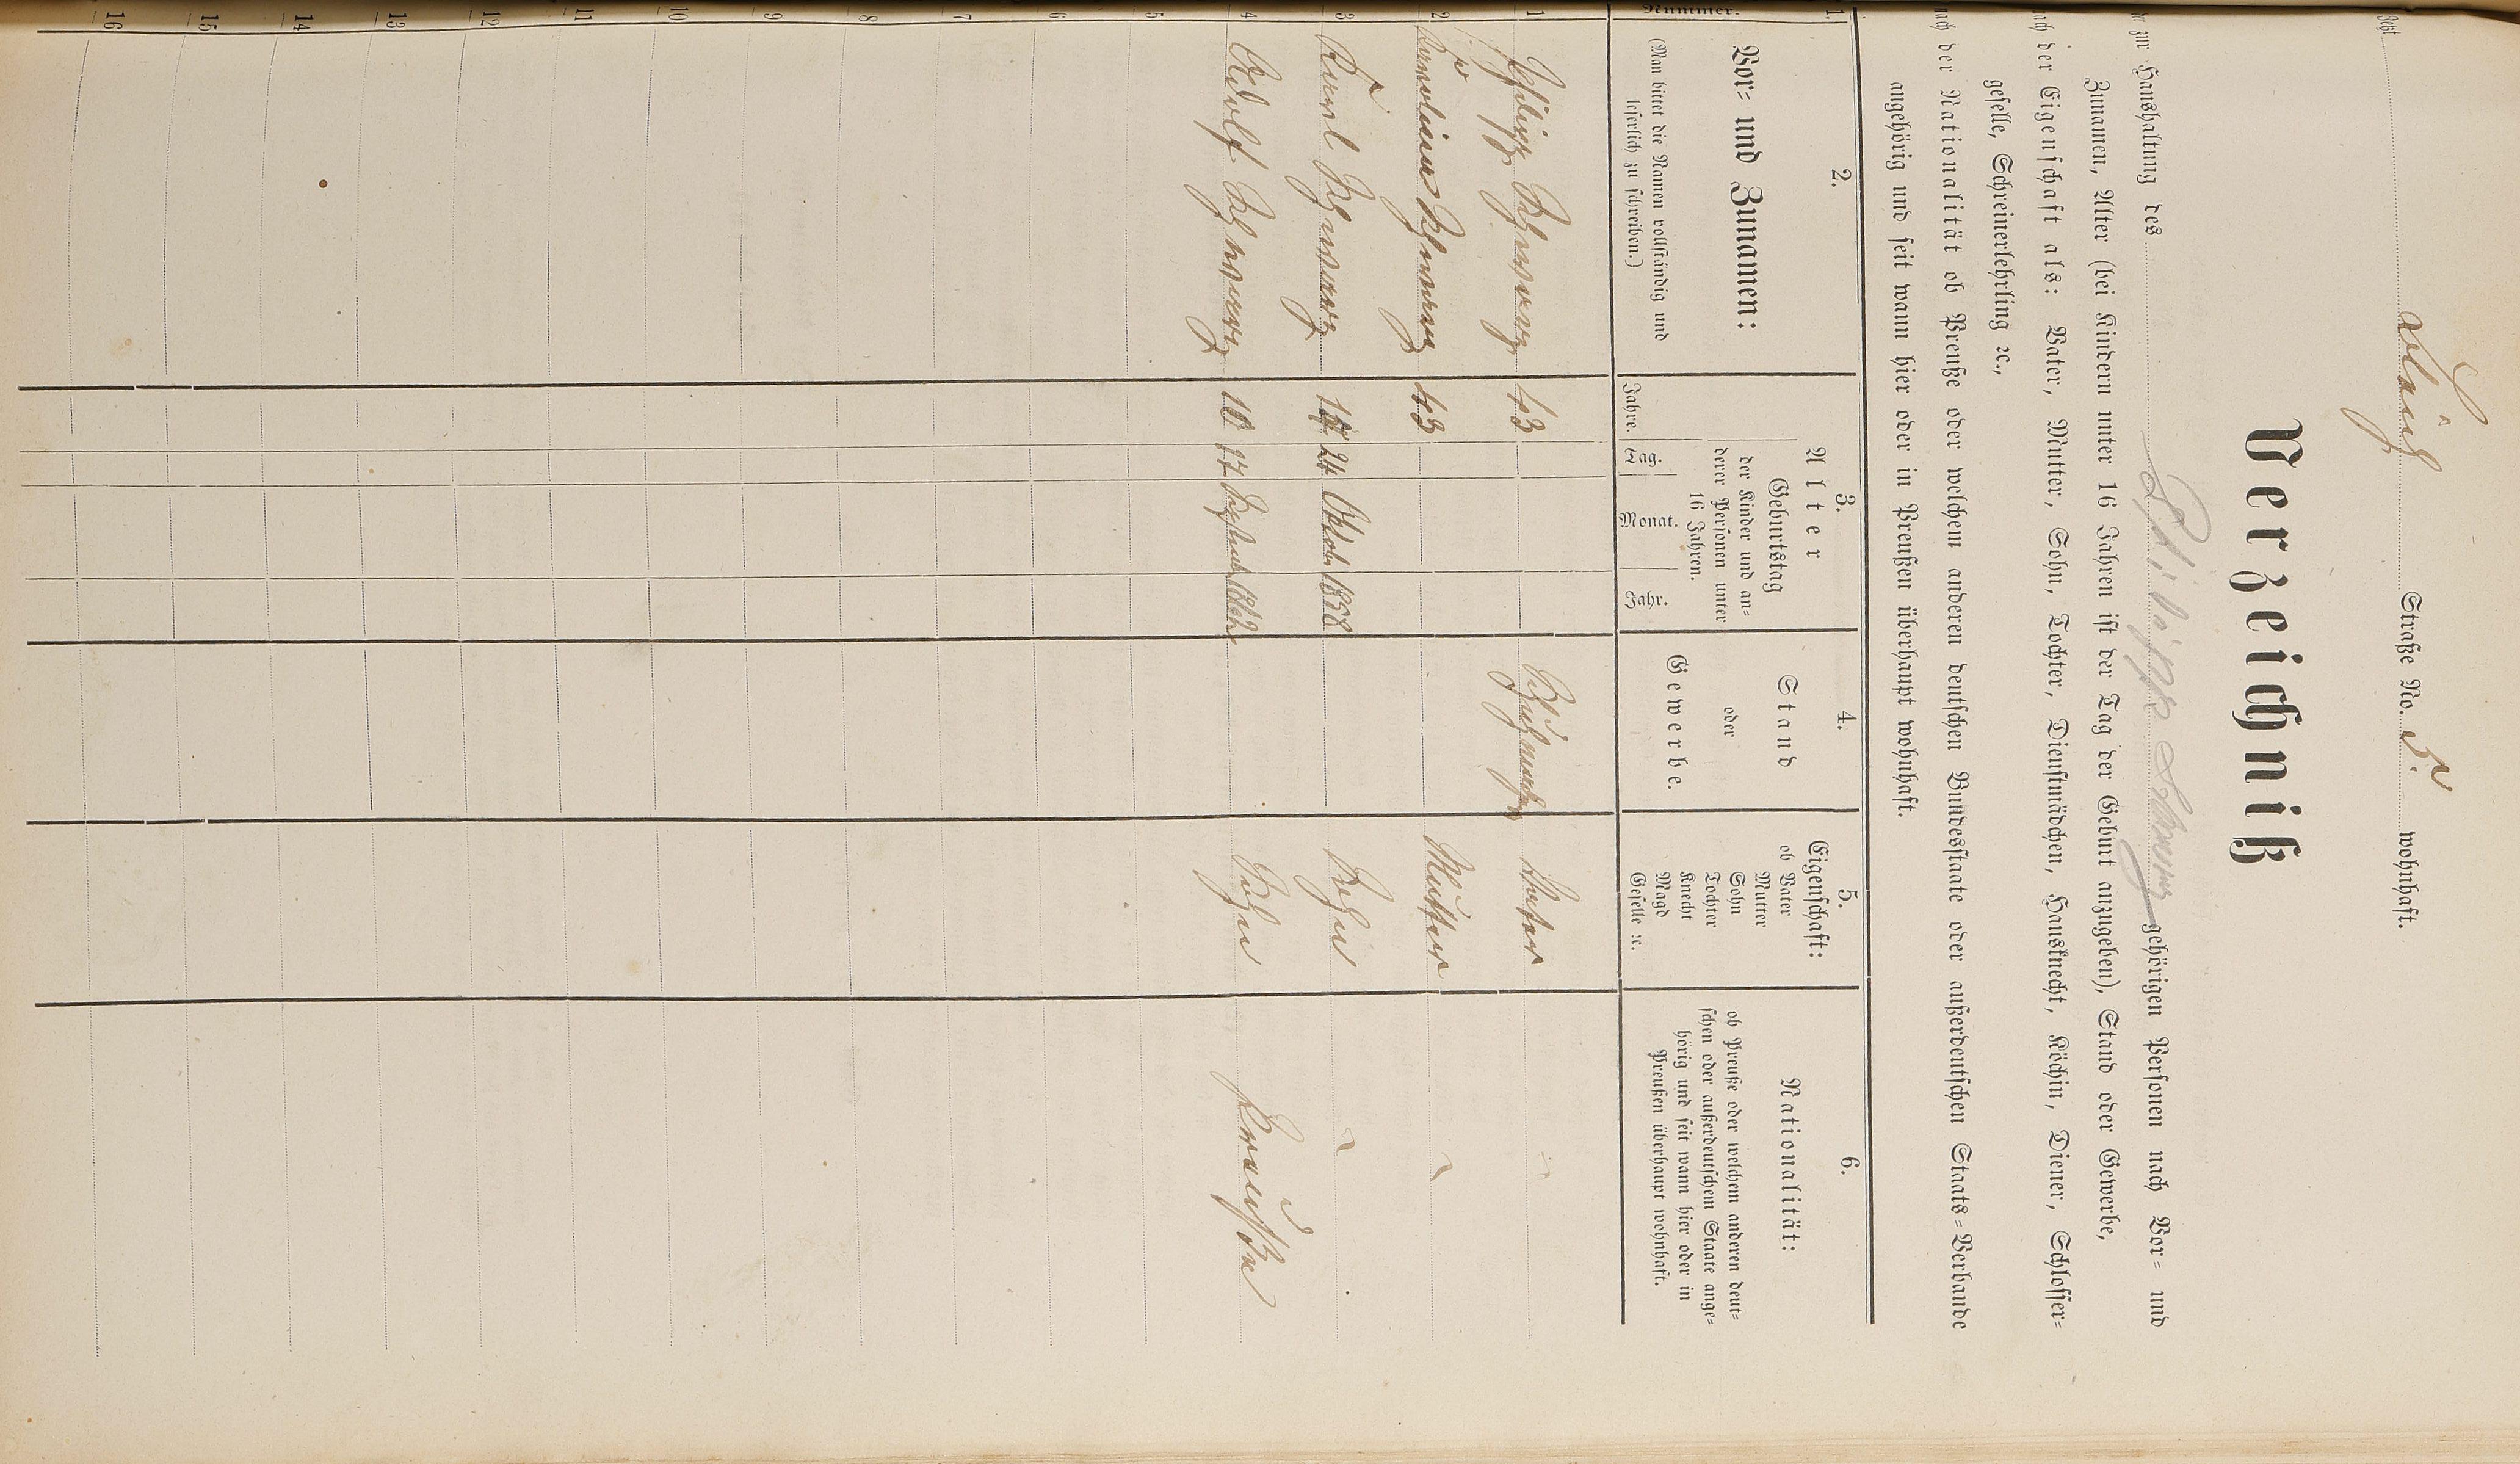 Jetzt Louisen Straße No. 5. wohnhaft.
Verzeichniß
der zur Haushaltung des Philipp gehörigen Personen nach Vor= und
Zunamen, Alter (bei Kindern unter 16 Jahren ist der Tag der Geburt anzugeben), Stand oder Gewerbe,
nach der Eigenschaft als: Vater, Mutter, Sohn, Tochter, Dienstmädchen, Hausknecht, Köchin, Diener, Schlosser=
geselle, Schreinerlehrling ꝛc.,
nach der Nationalität ob Preuße oder welchem anderen deutschen Bundesstaate oder außerdeutschen Staats=Verbande
angehörig und seit wann hier oder in Preußen überhaupt wohnhaft.
1. 2. 3. 4. 5. 6.
Nummer.
Vor= und Zunamen:
(Man bittet die Namen vollständig und
leserlich zu schreiben.)
Alter
Geburtstag
der Kinder und an=
derer Personen unter
16 Jahren.
Jahre. Tag. Monat. Jahr.
Stand
oder
Gewerbe.
Eigenschaft:
ob Vater
Mutter
Sohn
Tochter
Knecht
Magd
Geselle ꝛc.
Nationalität:
ob Preuße oder welchem anderen deut=
schen oder außerdeutschem Staate ange=
hörig und seit wann hier oder in
Preußen überhaupt wohnhaft.
1 Philipp 43 Vater
2 Karoline 43 Mutter
3 Karl 24 Oktob. 1858 Sohn
4 Adolf 10 17 Sohn Preußen
5
6
7
8
9
10
11
12
13
14
15
16